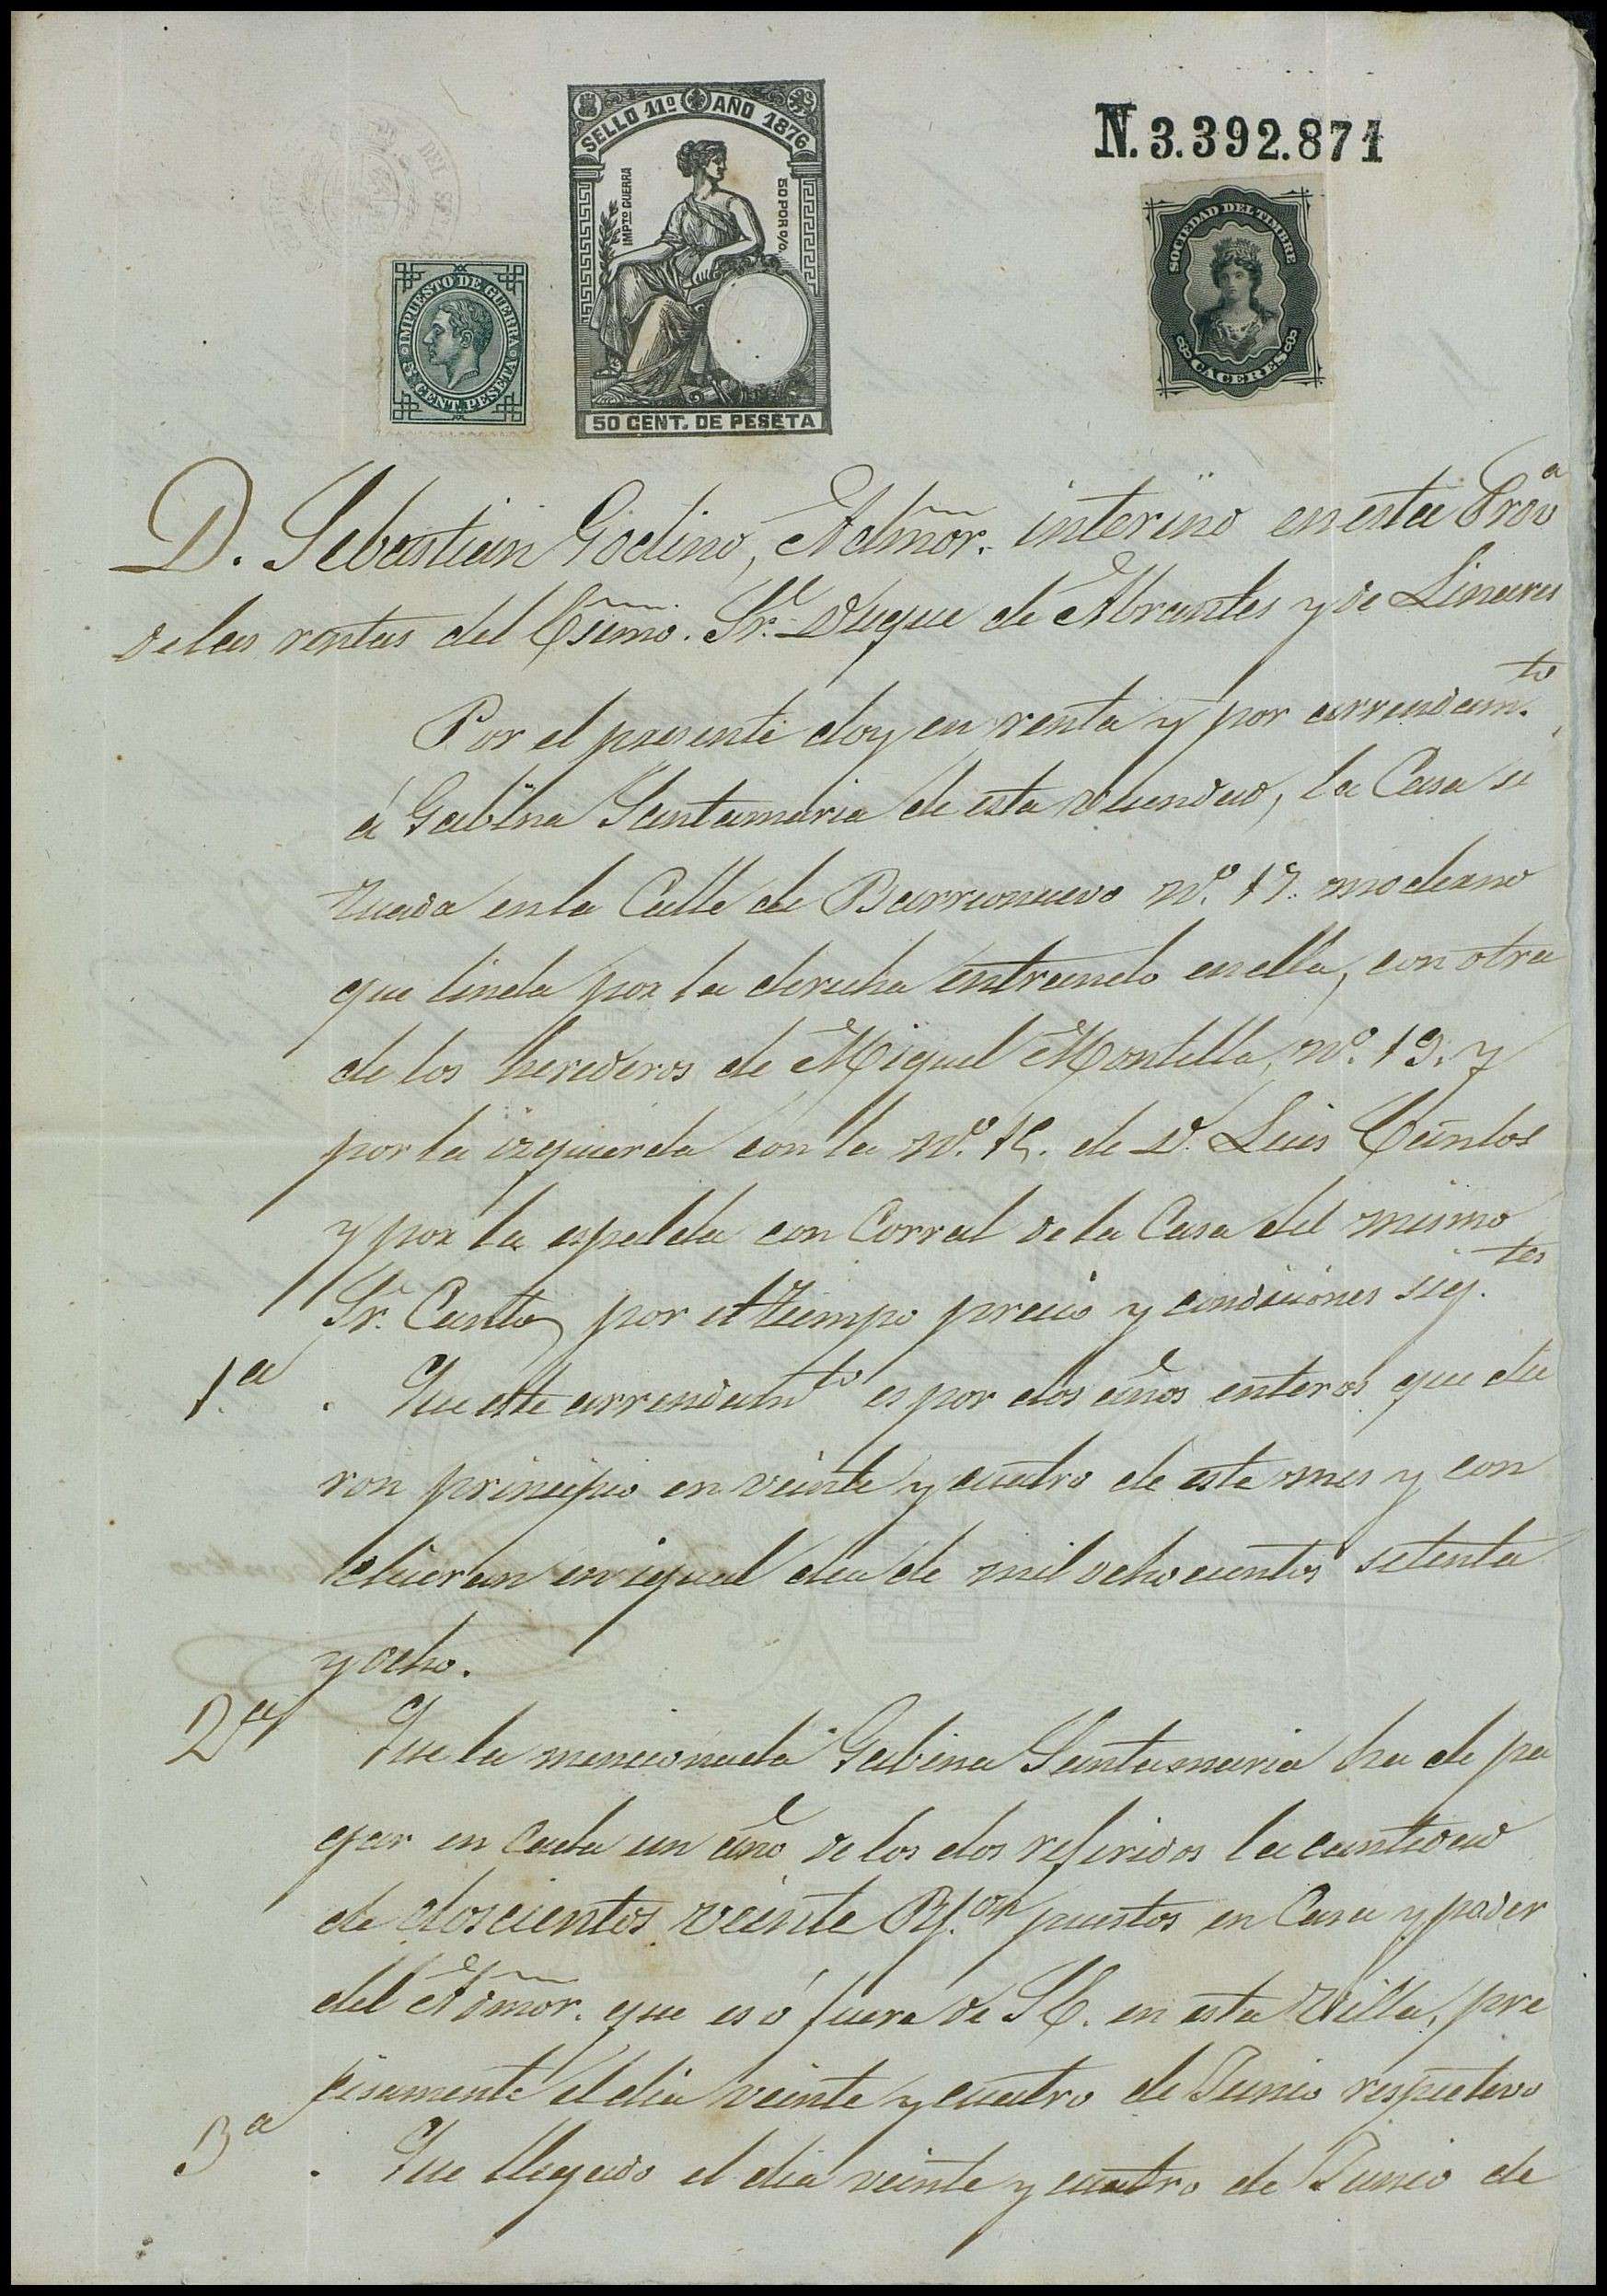 SELLO 11º AÑO 1876
IMPTO GUERRA
50 POR %
50 CENT. DE PESETA
N.3.392.871
IMPUESTO DE GUERRA
5 CENT. PESETA
SOCIEDAD DEL TIMBRE
CACERES
D. Sebastian Godino, Admor. interino en esta Prova
de las rentas del Esmo. Sr. Duque de Abrantes y de Linares
Por el presente doy en renta y por arrendamto
á Gabina Santamaria de esta vecindad, la Casa si
tuada en la Calle de Barrionuevo nº. 17. moderno
que linda por la derecha entrando en ella, con otra
de los herederos de Miguel Montilla, nº. 19. y
por la izquierda con la nº. 15. de D. Luis
y por la espalda con Corral de la Casa del mismo
Sr. por el tiempo precio y condiciones sigtes
1ª. Que este arrendamto es por dos años enteros que die
ron principio en veinte y cuatro de este mes y con
cluiran en igual dia de mil ochocientos setenta
y ocho.
2ª Que la mencionada Gabina Santamaria ha de pa
gar en cada un año de los dos referidos la cantidad
de doscientos veinte puestos en Casa y poder
del Admor. que es ó fuere de S.E. en esta Villa, pre
cisamente el dia veinte y cuatro de Junio respectivo
3ª. Que llegado el dia veinte y cuatro de Junio de